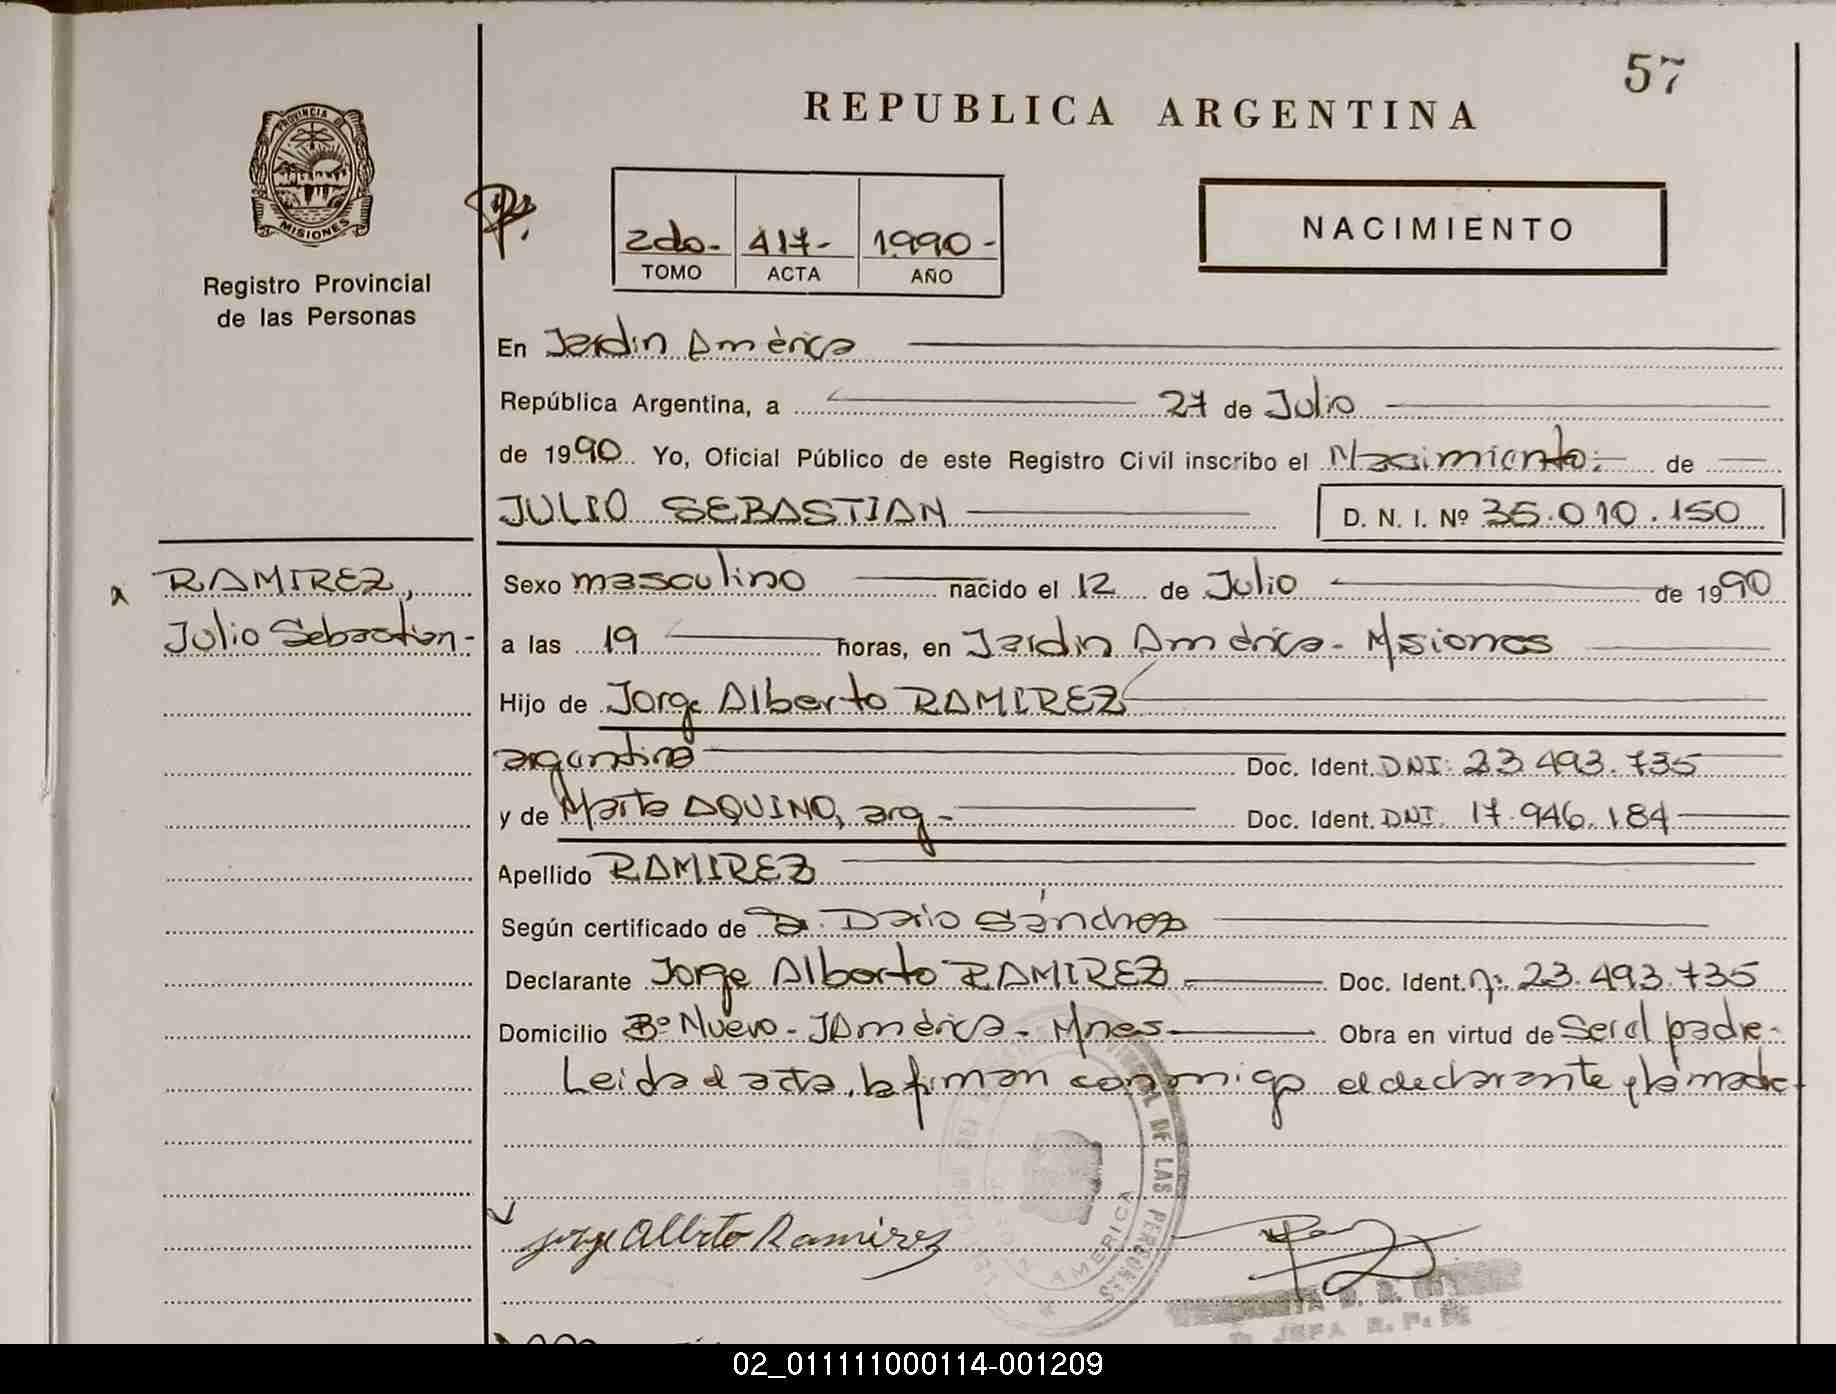 57
REPUBLICA ARGENTINA
PROVINCIA DE
MISIONES
Registro Provincial
de las Personas
2do- 417- 1990-
TOMO ACTA AÑO
NACIMIENTO
En Jardin América
República Argentina, a 27 de Julio
de 1990 Yo, Oficial Público de este Registro Civil inscribo el Nacimiento.- de
JULIO SEBASTIAN D. N. I. Nº 35.010.150
RAMIREZ,
Julio Sebastian-
Sexo masculino nacido el 12 de Julio de 1990
a las 19 horas, en Jardin América- Misiones
Hijo de Jorge Alberto RAMIREZ
argentino Doc. Ident. DNI: 23.493.735
y de Marta AQUINO, arg- Doc. Ident. DNI. 17.946.184
Apellido RAMIREZ
Según certificado de Dario Sánchez
Declarante Jorge Alberto RAMIREZ Doc. Ident. 23.493.735
Domicilio Bº Nuevo- JAmérica- Mnes Obra en virtud de Ser el padre-
Leida el acta, la firman conmigo el declarante y la madre
DE LAS PERSONAS
AMERICA
Jorge Alberto Ramirez
JEFA R. P.
02_011111000114-001209